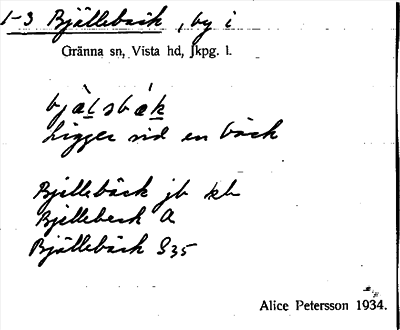 1-3 Bjällebäck, by i
Gränna sn, Vista hd, Jkpg. l.
bjälsbäk
Ligger vid en bäck
Bjellebäck jb kb
Bjellebeck A
Bjällebäck S35
Alice Petersson 1934.